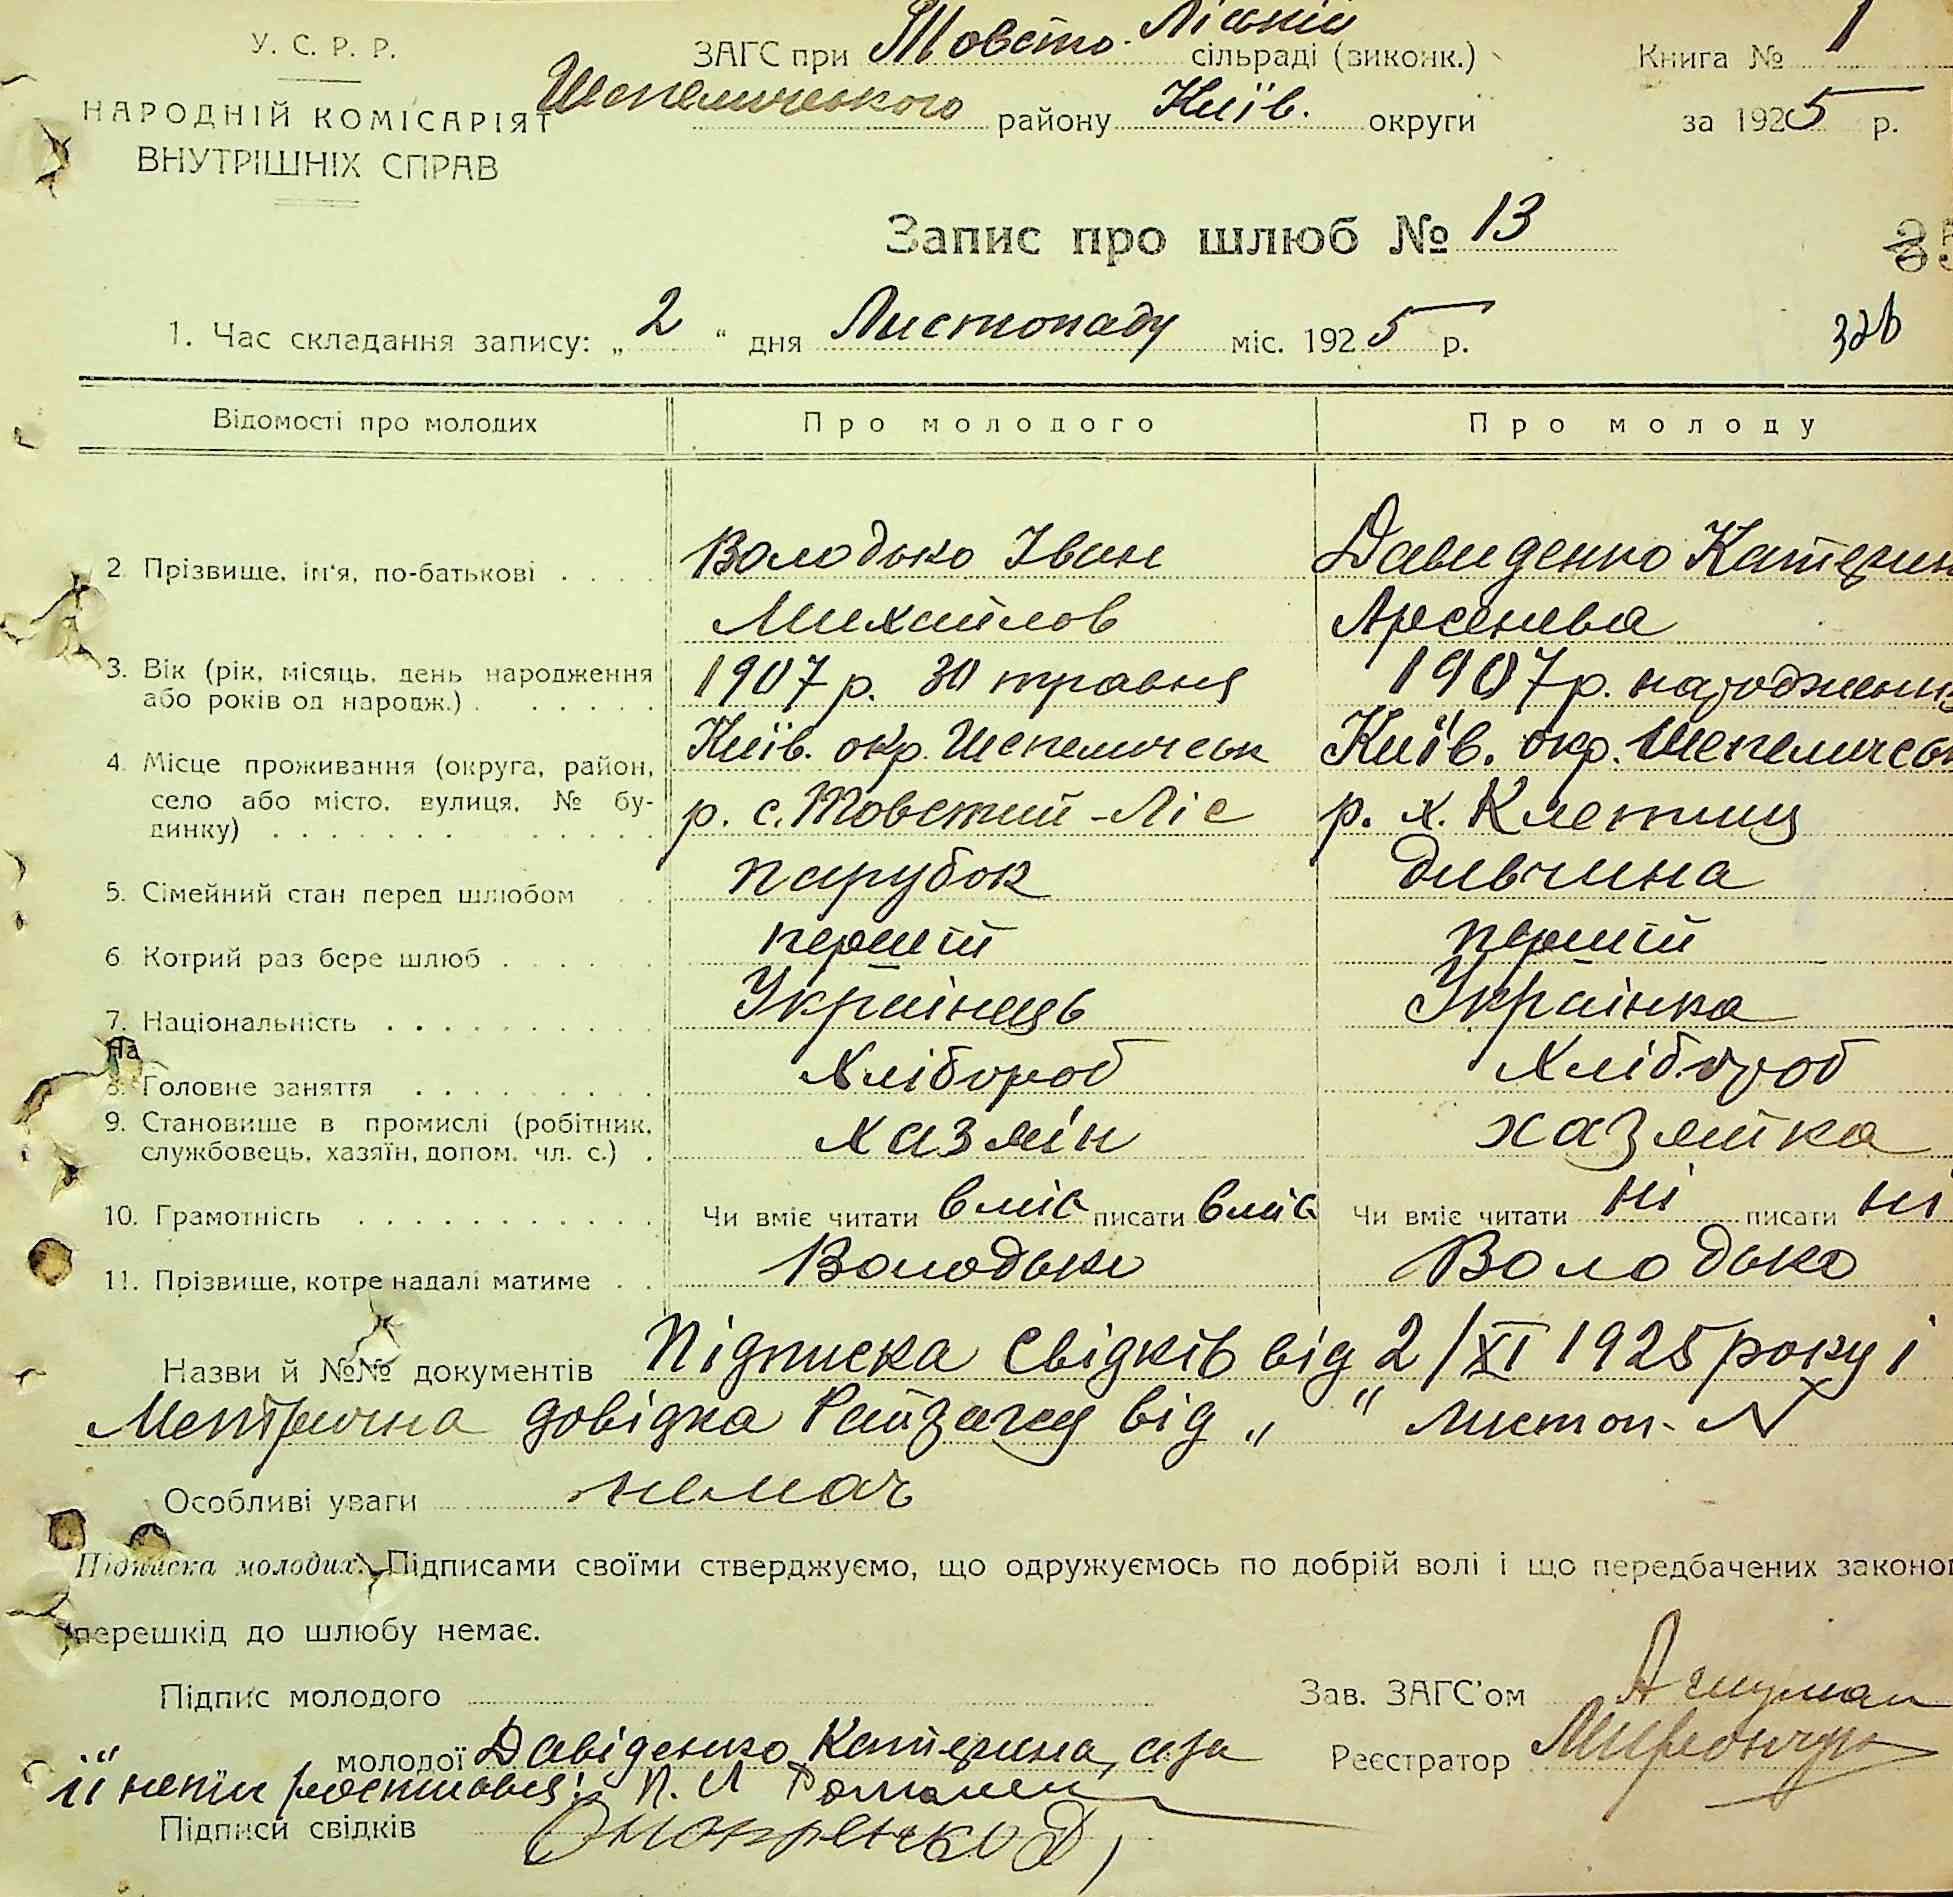 У. С. Р. Р.
НАРОДНІЙ КОМІСАРІЯТ
ВНУТРІШНІХ СПРАВ
ЗАГС при Товсто-Ліській сільраді (виконк.)
Шепелического району Київ. округи
Книга № 1
за 1925 р.
Запис про шлюб № 13
35
1. Час складання запису: „2“ дня Листопаду міс. 1925 р.
32б
Відомості про молодих Про молодого Про молоду
2. Прізвище, ім'я, по-батькові . . . . Володько Іван Давиденко Катерин
Михайлов Арсенева
3. Вік (рік, місяць, день народження 1907 р. 30 травня 1907 р. народження
або років од народж.) . . . . . .
4. Місце проживання (округа, район, Київ. окр. Шепеличськ Київ. окр. Шепеличськ
село або місто, вулиця, № бу- р. с. Товстий-Ліс р. х.
динку) . . . . . . . . . . . .
5. Сімейний стан перед шлюбом . . парубок дивчина
6. Котрий раз бере шлюб . . . . . перший перший
7. Національність . . . . . . . . . . Українець Українка
На
8. Головне заняття . . . . . . . . . Хлібороб Хлібороб
9. Становище в промислі (робітник, хазяїн хазяйка
службовець, хазяїн, допом. чл. с.) .
10. Грамотність . . . . . . . . . . . . Чи вміє читати вміє писати вміє Чи вміє читати ні писати ні
11. Прізвище, котре надалі матиме . . Володько Володько
Назви й №№ документів Підписка свідків від 2/XI 1925 року і
Метрична довідка Райзагся від „ “ листоп. N
Особливі уваги немає
Підписка молодих. Підписами своїми стверджуємо, що одружуємось по добрій волі і що передбачених законом
перешкід до шлюбу немає.
Підпис молодого
Зав. ЗАГС'ом
молодої Давіденко Катерина, а за
Реєстратор
її
Підписи свідків